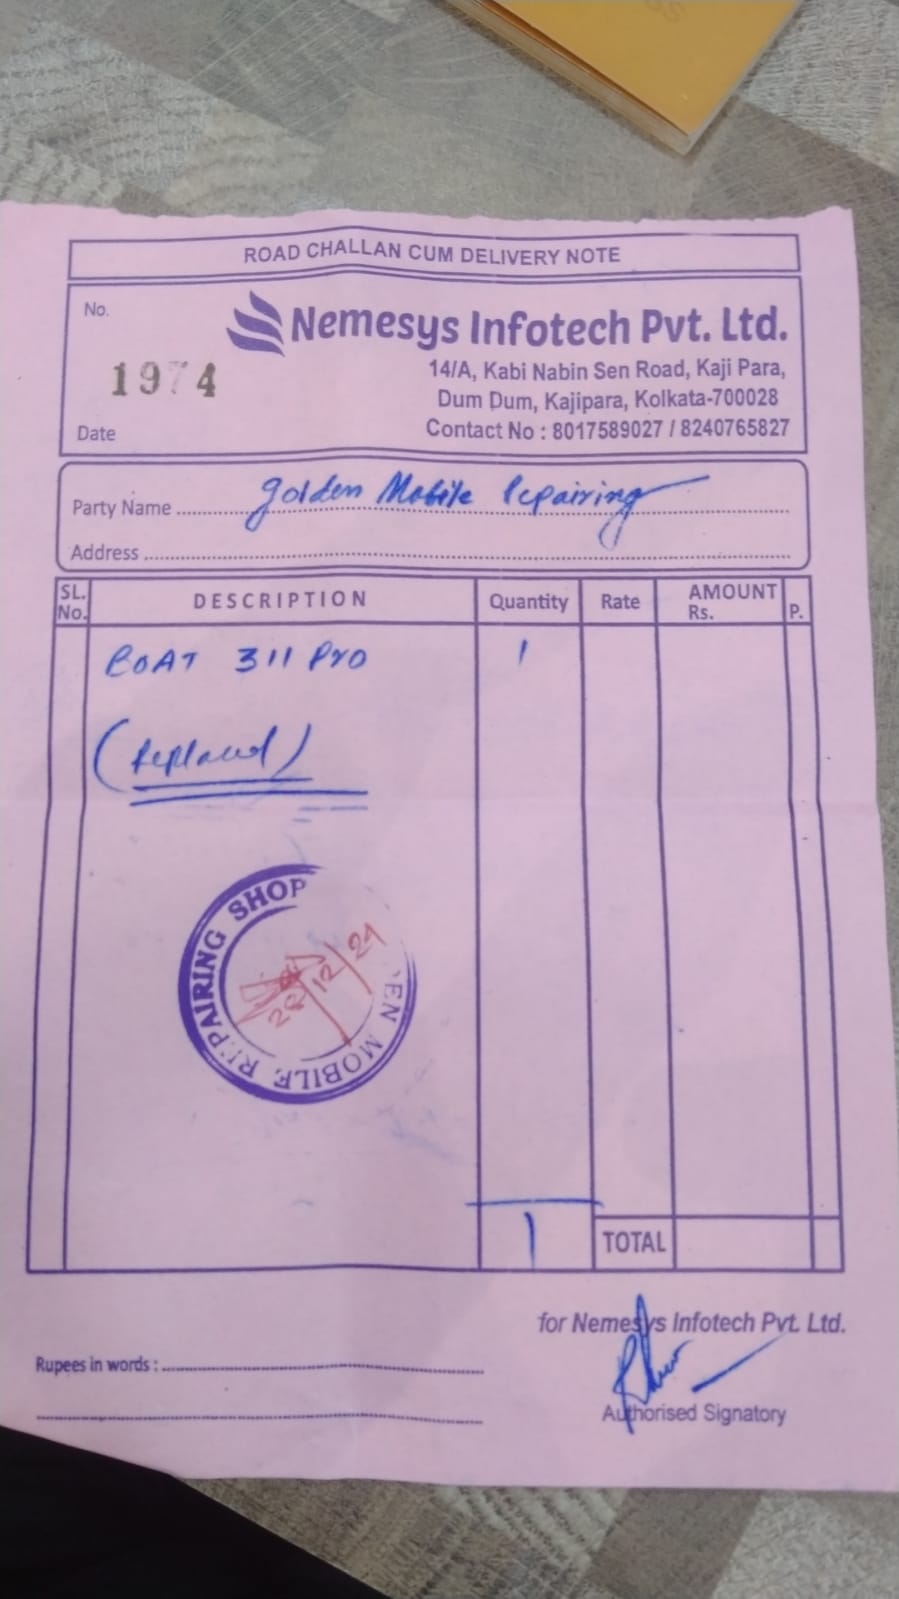 ROAD CHALLAN CUM DELIVERY NOTE
No.
1974
Date
Nemesys Infotech Pvt. Ltd.
14/A, Kabi Nabin Sen Road, Kaji Para,
Dum Dum, Kajipara, Kolkata-700028
Contact No : 8017589027 / 8240765827
Party Name golden Mobile Repairing
Address
SL. No. DESCRIPTION Quantity Rate AMOUNT Rs. P.
BOAT 311 Pro 1
(Replaced)
EN MOBILE REPAIRING SHOP
/12/24
1 TOTAL
for Nemesys Infotech Pvt. Ltd.
Rupees in words :
Authorised Signatory